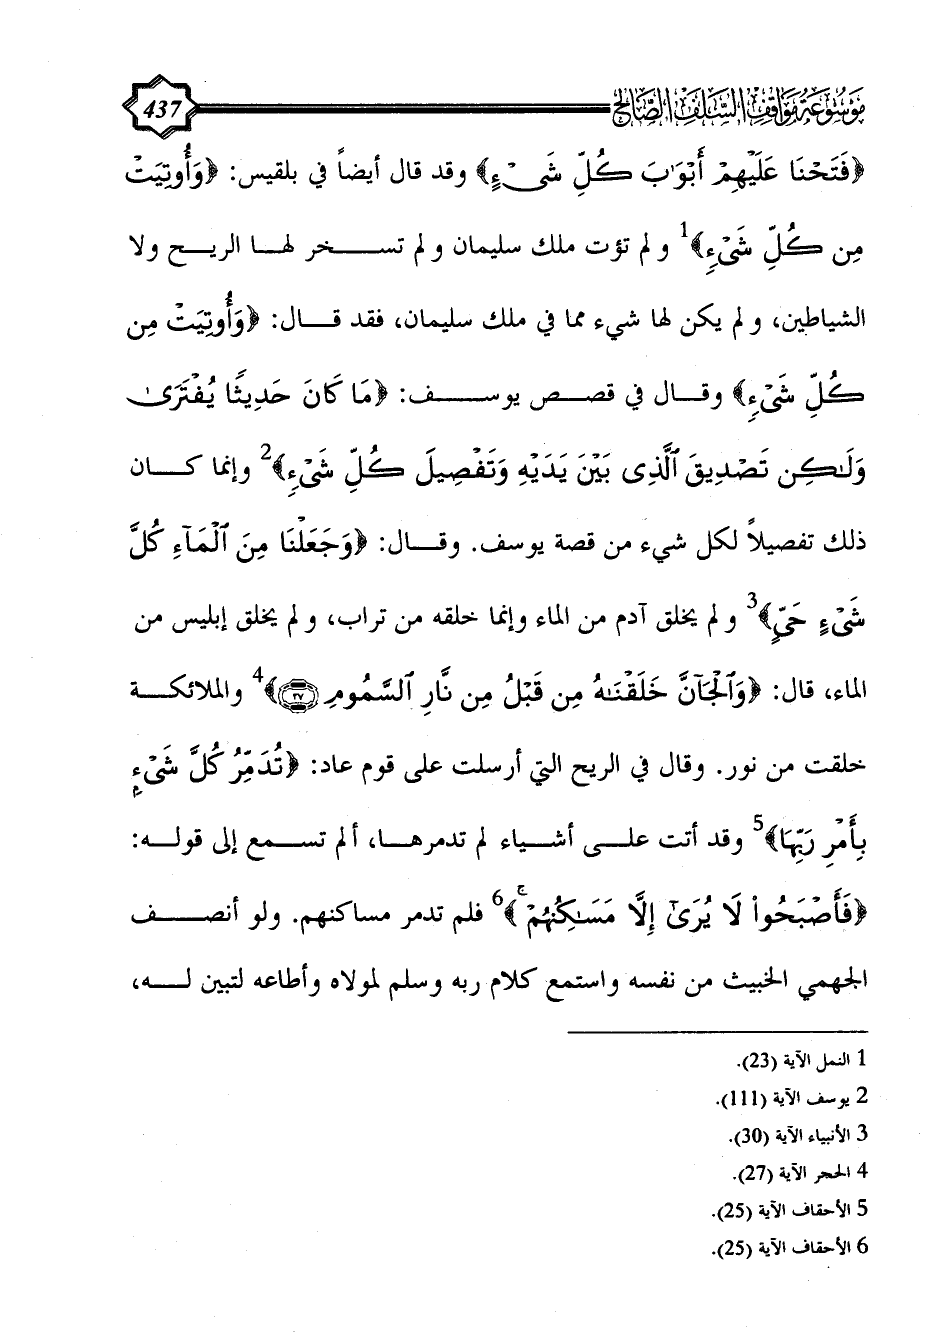 موسوعة مواقف السلف الصالح
437
﴿فَتَحْنَا عَلَيْهِمْ أَبْوَٰبَ كُلِّ شَيْءٍ﴾ وقد قال أيضاً في بلقيس: ﴿وَأُوتِيَتْ
مِن كُلِّ شَيْءٍ﴾1 ولم تؤت ملك سليمان ولم تسخر لها الريح ولا
الشياطين، ولم يكن لها شيء مما في ملك سليمان، فقد قال: ﴿وَأُوتِيَتْ مِن
كُلِّ شَيْءٍ﴾ وقال في قصص يوسف: ﴿مَا كَانَ حَدِيثًا يُفْتَرَىٰ
وَلَٰكِن تَصْدِيقَ ٱلَّذِى بَيْنَ يَدَيْهِ وَتَفْصِيلَ كُلِّ شَيْءٍ﴾2 وإنما كان
ذلك تفصيلاً لكل شيء من قصة يوسف. وقال: ﴿وَجَعَلْنَا مِنَ ٱلْمَآءِ كُلَّ
شَيْءٍ حَيٍّ﴾3 ولم يخلق آدم من الماء وإنما خلقه من تراب، ولم يخلق إبليس من
الماء، قال: ﴿وَٱلْجَآنَّ خَلَقْنَٰهُ مِن قَبْلُ مِن نَّارِ ٱلسَّمُومِ ٢٧﴾4 والملائكة
خلقت من نور. وقال في الريح التي أرسلت على قوم عاد: ﴿تُدَمِّرُ كُلَّ شَيْءٍ
بِأَمْرِ رَبِّهَا﴾5 وقد أتت على أشياء لم تدمرها، ألم تسمع إلى قوله:
﴿فَأَصْبَحُوا۟ لَا يُرَىٰٓ إِلَّا مَسَٰكِنُهُمْ ۚ﴾6 فلم تدمر مساكنهم. ولو أنصف
الجهمي الخبيث من نفسه واستمع كلام ربه وسلم لمولاه وأطاعه لتبين له،
1 النمل الآية (23).
2 يوسف الآية (111).
3 الأنبياء الآية (30).
4 الحجر الآية (27).
5 الأحقاف الآية (25).
6 الأحقاف الآية (25).